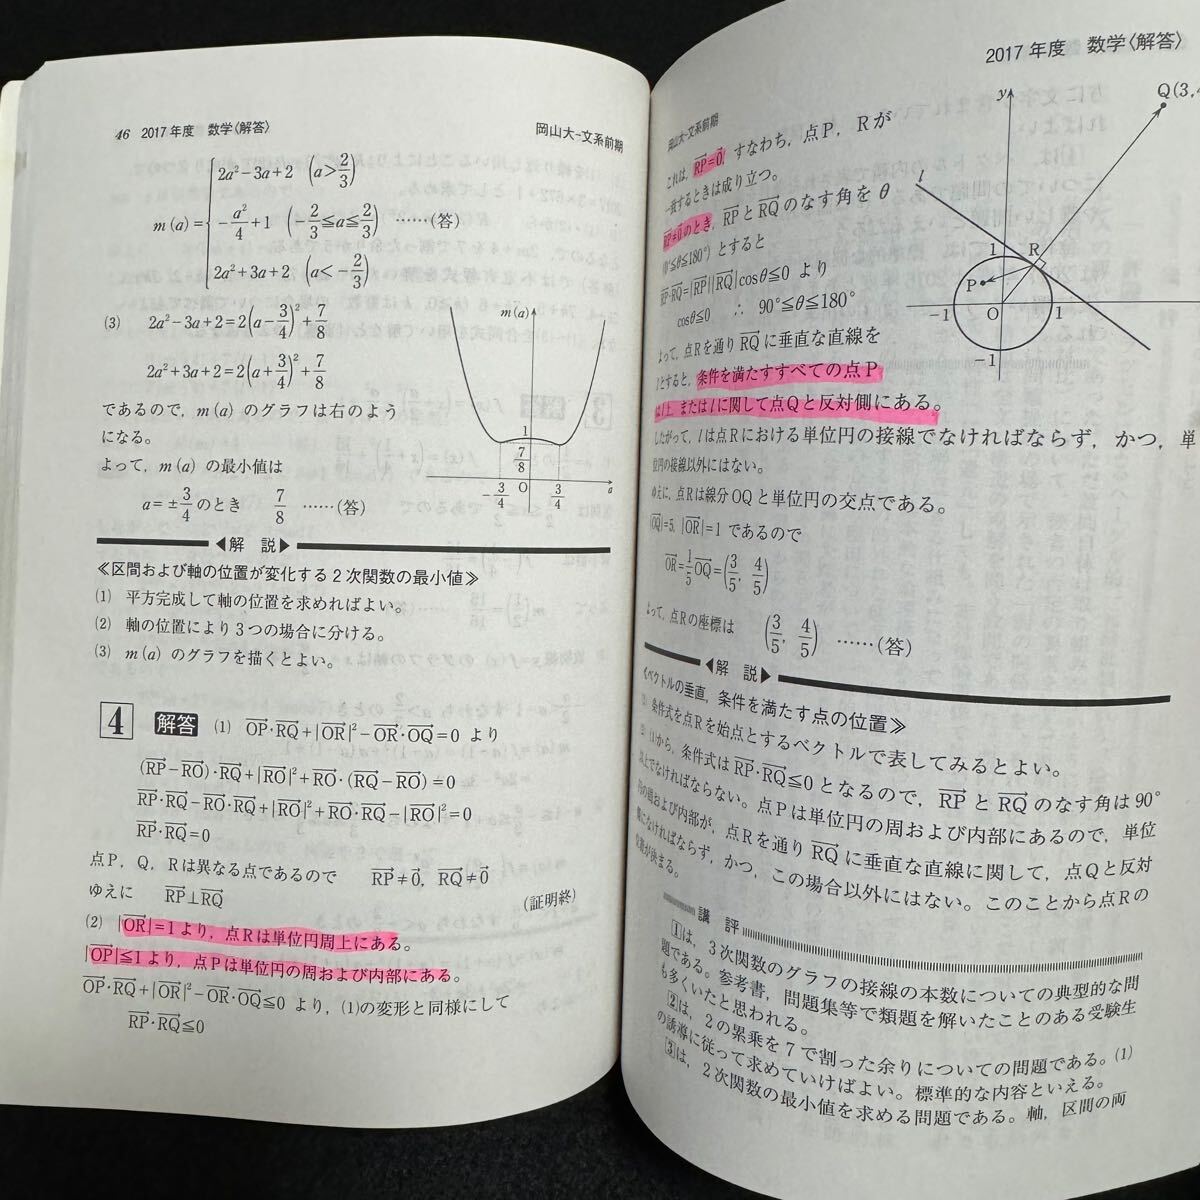 46 2017年度 数学〈解答〉 岡山大-文系前期
m(a)= { 2a²−3a+2 (a>2/3)
−a²/4+1 (−2/3≦a≦2/3) ……(答)
2a²+3a+2 (a<−2/3)
(3) 2a²−3a+2=2(a−3/4)²+7/8
2a²+3a+2=2(a+3/4)²+7/8
であるので，m(a) のグラフは右のよう
になる。
よって，m(a) の最小値は
a=±3/4のとき 7/8 ……(答)
m(a)
1
7/8
−3/4 O 3/4 a
◀解 説▶
≪区間および軸の位置が変化する2次関数の最小値≫
(1) 平方完成して軸の位置を求めればよい。
(2) 軸の位置により3つの場合に分ける。
(3) m(a) のグラフを描くとよい。
4 解答 (1) OP→·RQ→+|OR→|²−OR→·OQ→=0 より
(RP→−RO→)·RQ→+|RO→|²+RO→·(RQ→−RO→)=0
RP→·RQ→−RO→·RQ→+|RO→|²+RO→·RQ→−|RO→|²=0
RP→·RQ→=0
点P，Q，Rは異なる点であるので RP→≠0→，RQ→≠0→
ゆえに RP→⊥RQ→ (証明終)
(2) |OR→|=1より，点Rは単位円周上にある。
|OP→|≦1より，点Pは単位円の周および内部にある。
OP→·RQ→+|OR→|²−OR→·OQ→≦0 より，(1)の変形と同様にして
RP→·RQ→≦0
2017年度 数学〈解答〉
岡山大-文系前期
これは，RP→=0→，すなわち，点P，Rが
一致するときは成り立つ。
RP→≠0→のとき，RP→とRQ→のなす角をθ
(0°≦θ≦180°) とすると
RP→·RQ→=|RP→||RQ→|cosθ≦0 より
cosθ≦0 ∴ 90°≦θ≦180°
よって，点Rを通りRQ→に垂直な直線を
lとすると，条件を満たすすべての点P
はl上，またはlに関して点Qと反対側にある。
したがって，lは点Rにおける単位円の接線でなければならず，かつ，単
位円の接線以外にはない。
ゆえに，点Rは線分OQと単位円の交点である。
|OQ→|=5，|OR→|=1であるので
OR→=1/5 OQ→=(3/5, 4/5)
よって，点Rの座標は (3/5, 4/5) ……(答)
y
Q(3,
l
1 R
P
−1 O 1
−1
◀解 説▶
≪ベクトルの垂直，条件を満たす点の位置≫
(1) 条件式を点Rを始点とするベクトルで表してみるとよい。
(2) (1)から，条件式はRP→·RQ→≦0となるので，RP→とRQ→のなす角は90°
以上でなければならない。点Pは単位円の周および内部にあるので，単位
円の周および内部が，点Rを通りRQ→に垂直な直線に関して，点Qと反対
側になければならず，かつ，この場合以外にはない。このことから点Rの
位置が決まる。
講 評
1は，3次関数のグラフの接線の本数についての典型的な問
題である。参考書，問題集等で類題を解いたことのある受験生
も多くいたと思われる。
2は，2の累乗を7で割った余りについての問題である。(1)
の誘導に従って求めていけばよい。標準的な内容といえる。
3は，2次関数の最小値を求める問題である。軸，区間の両